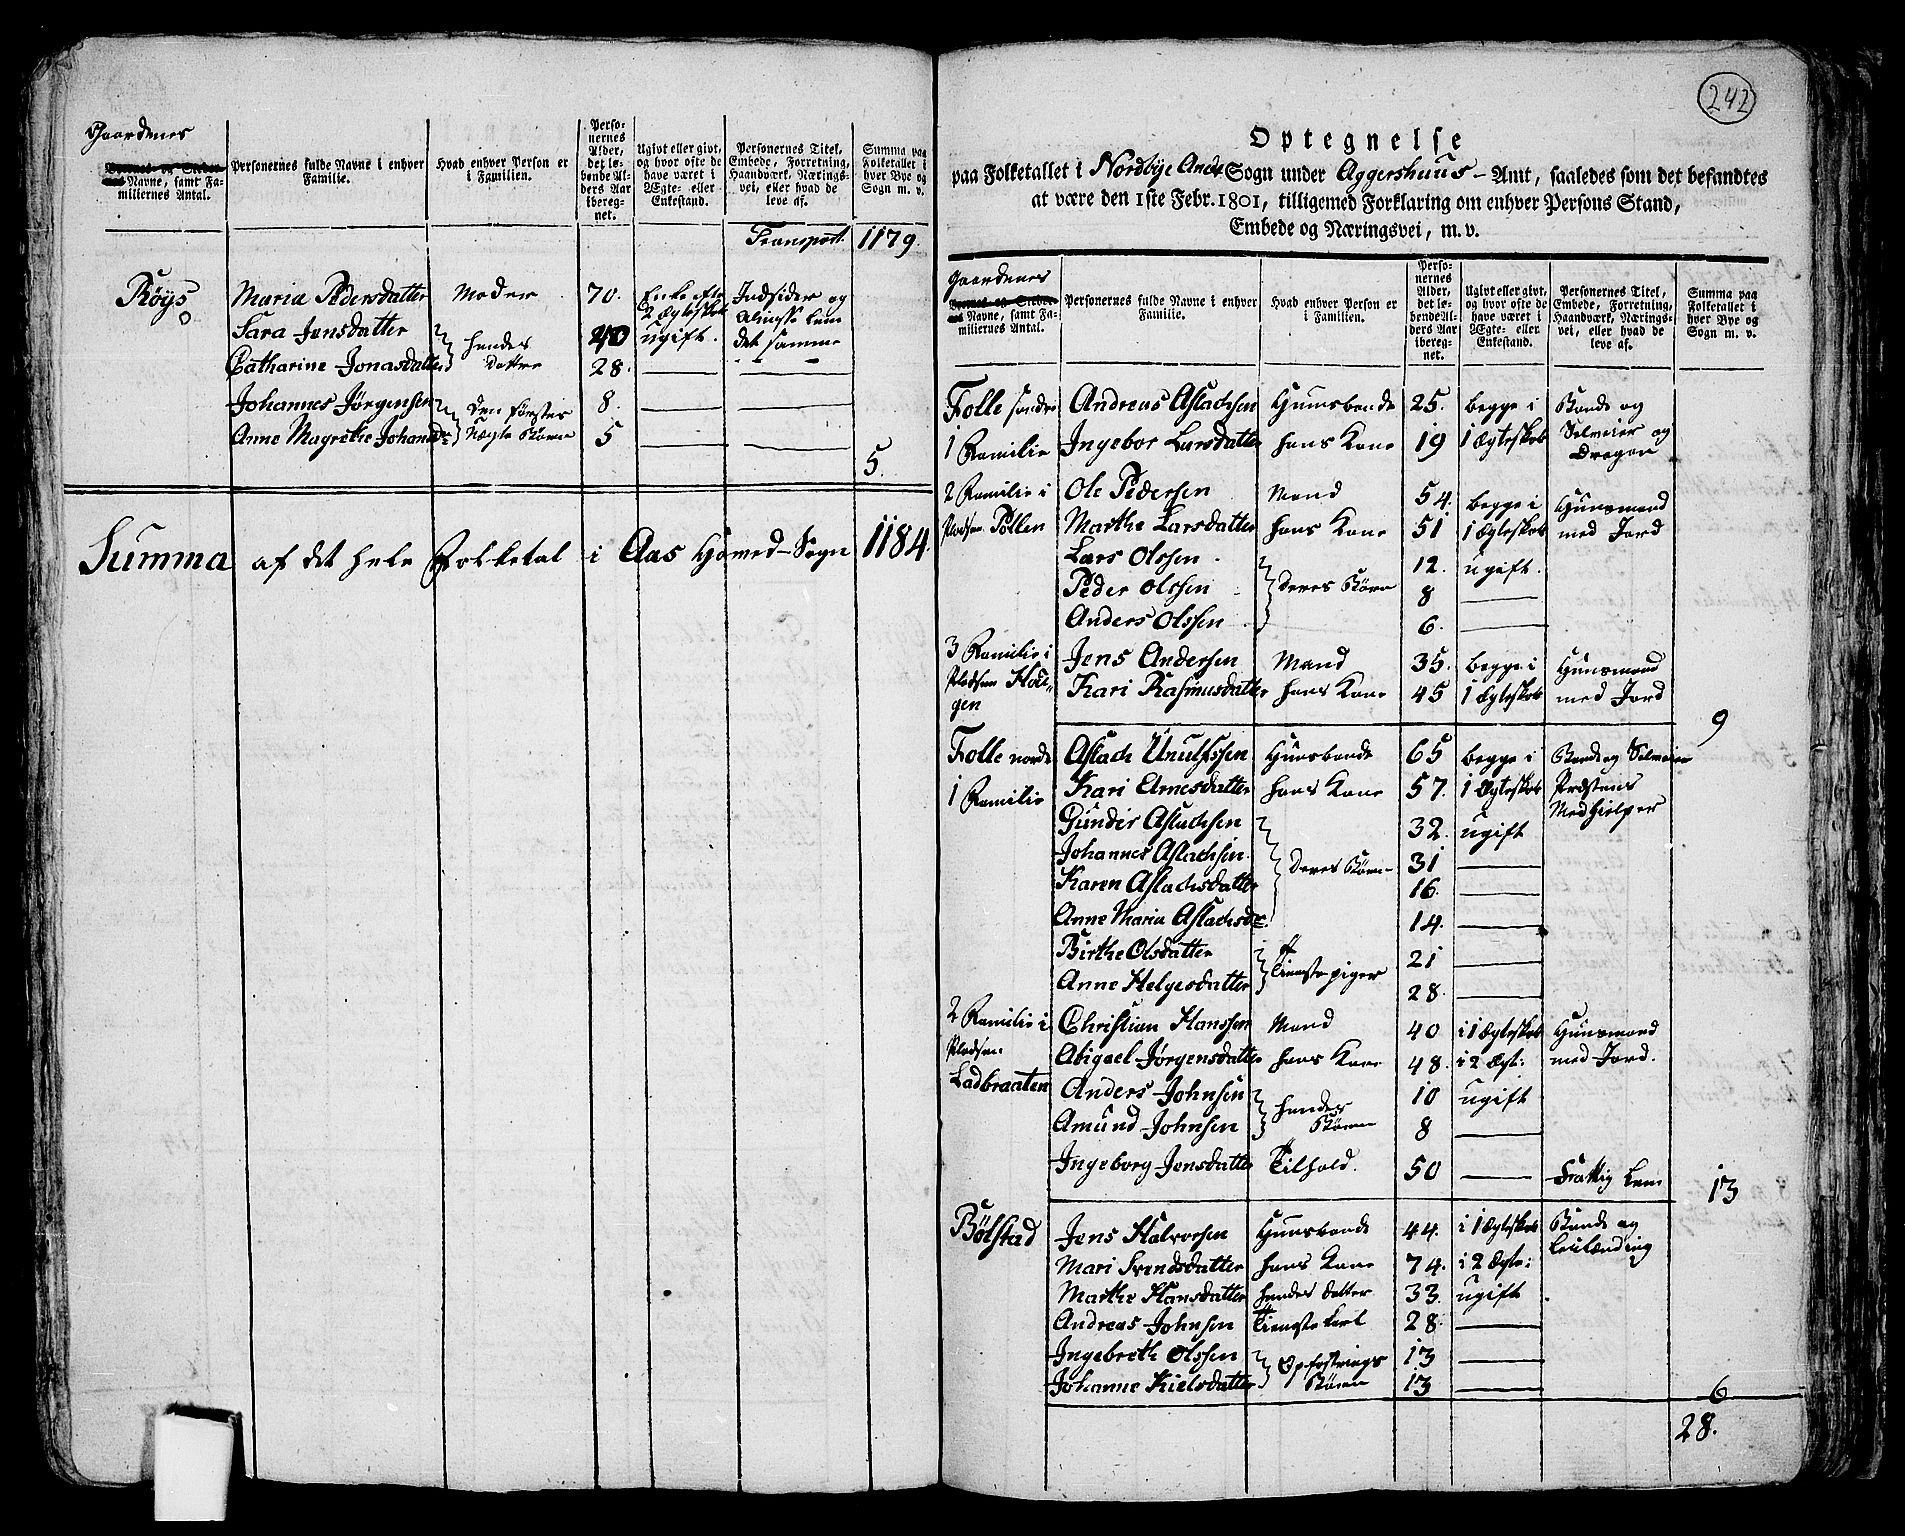 Gaardenes
Byernes og Stedernes Navne, samt Familiernes Antal.
Personernes fulde Navne i enhver Familie.
Hvad enhver Person er i Familien.
Personernes Alder, det løbende Alders Aar iberegnet.
Ugivt eller givt, og hvor ofte de have været i Ægte- eller Enkestand.
Personernes Titel, Embede, Forretning, Haandværk, Næringsvei, eller hvad de leve af.
Summa paa Folketallet i hver Bye og Sogn m. v.
Transport. 1179.
Røys Maria Pedersdatter Moder 70. Enke efter 2 Ægteskab Indsider og Almisse Lem
Sara Jensdatter hendes Døttre 40 ugift. det samme
Catharine Jonasdatter 28.
Johannes Jørgensen den førstes 8.
Anne Magrethe Johansdr Uægte Børn 5
5.
Summa af det hele Folketal i Aas Hoved-Sogn 1184.
242
Optegnelse
paa Folketallet i Nordbye Anex Sogn under Aggershuus-Amt, saaledes som det befandtes
at være den 1ste Febr. 1801, tilligemed Forklaring om enhver Persons Stand,
Embede og Næringsvei, m. v.
Gaardenes
Byernes og Stedernes Navne, samt Familiernes Antal.
Personernes fulde Navne i enhver Familie.
Hvad enhver Person er i Familien.
Personernes Alder, det løbende Alders Aar iberegnet.
Ugivt eller givt, og hvor ofte de have været i Ægte- eller Enkestand.
Personernes Titel, Embede, Forretning, Haandværk, Næringsvei, eller hvad de leve af.
Summa paa Folketallet i hver Bye og Sogn m. v.
Folle søndre Andreas Aslachsen Huusbonde 25. begge i Bonde og
1 Familie Ingebor Larsdatter hans Kone 19 1 Ægteskab Selveier og Dragon
2 Familie i Ole Pedersen Mand 54. begge i Huusmand
Pladsen Pøllen Marthe Larsdatter hans Kone 51 1 Ægteskab med Jord
Lars Olssen 12. ugift.
Peder Olssen deres Børn 8
Anders Olssen 6.
3 Familie i Jens Andersen Mand 35. begge i Huusmand
Pladsen Haugen Kari Rasmusdatter hans Kone 45 1 Ægteskab med Jord
9
Folle nordre Aslach Unulfssen Huusbonde 65 begge i Bonde og Selveier
1 Familie Kari Elmesdatter hans Kone 57. 1 Ægteskab Præstens
Gunder Aslachsen 32. ugift Medhielper
Johannes Aslachsen deres Børn 31
Karen Aslachsdatter 16.
Anne Maria Aslachsdr. 14.
Birthe Olsdatter Tienestepiger 21
Anne Helgesdatter 28.
2 Familie i Christian Hanssen Mand 40 i 1 Ægteskab Huusmand
Pladsen Abigael Jørgensdatter hans Kone 48. i 2 Ægt: med Jord.
Ladbraaten Anders Johnsen hendes 10 ugift
Amund Johnsen Børn 8
Ingeborg Jensdatter Tilhold. 50 Fattig Lem
13
Bølstad Jens Halvorsen Huusbonde 44. i 1 Ægteskab Bonde og
Mari Svendsdatter hans Kone 74. i 2 Ægte: Leilænding
Marthe Hansdatter hendes Datter 33. ugift
Andreas Johnsen Tienestekarl 28.
Ingebreth Olssen Opfostrings 13
Johanne Kielsdatter Børn 13
6
28.